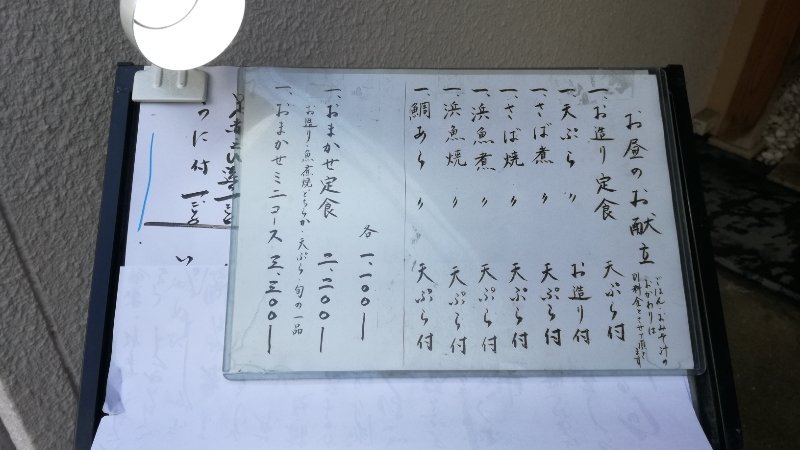 お昼のお献立
ごはん・おみそ汁の
おかわりは
別料金とさせて頂きます
一、お造り定食 天ぷら付
一、天ぷら 〃 お造り付
一、さば煮 〃 天ぷら付
一、さば焼 〃 天ぷら付
一、浜魚煮 〃 天ぷら付
一、浜魚焼 〃 天ぷら付
一、鯛あら 〃 天ぷら付
各 一、一〇〇ー
一、おまかせ定食 二、二〇〇ー
お造り・魚煮焼どちらか・天ぷら 旬の一品
一、おまかせミニコース 三、三〇〇ー